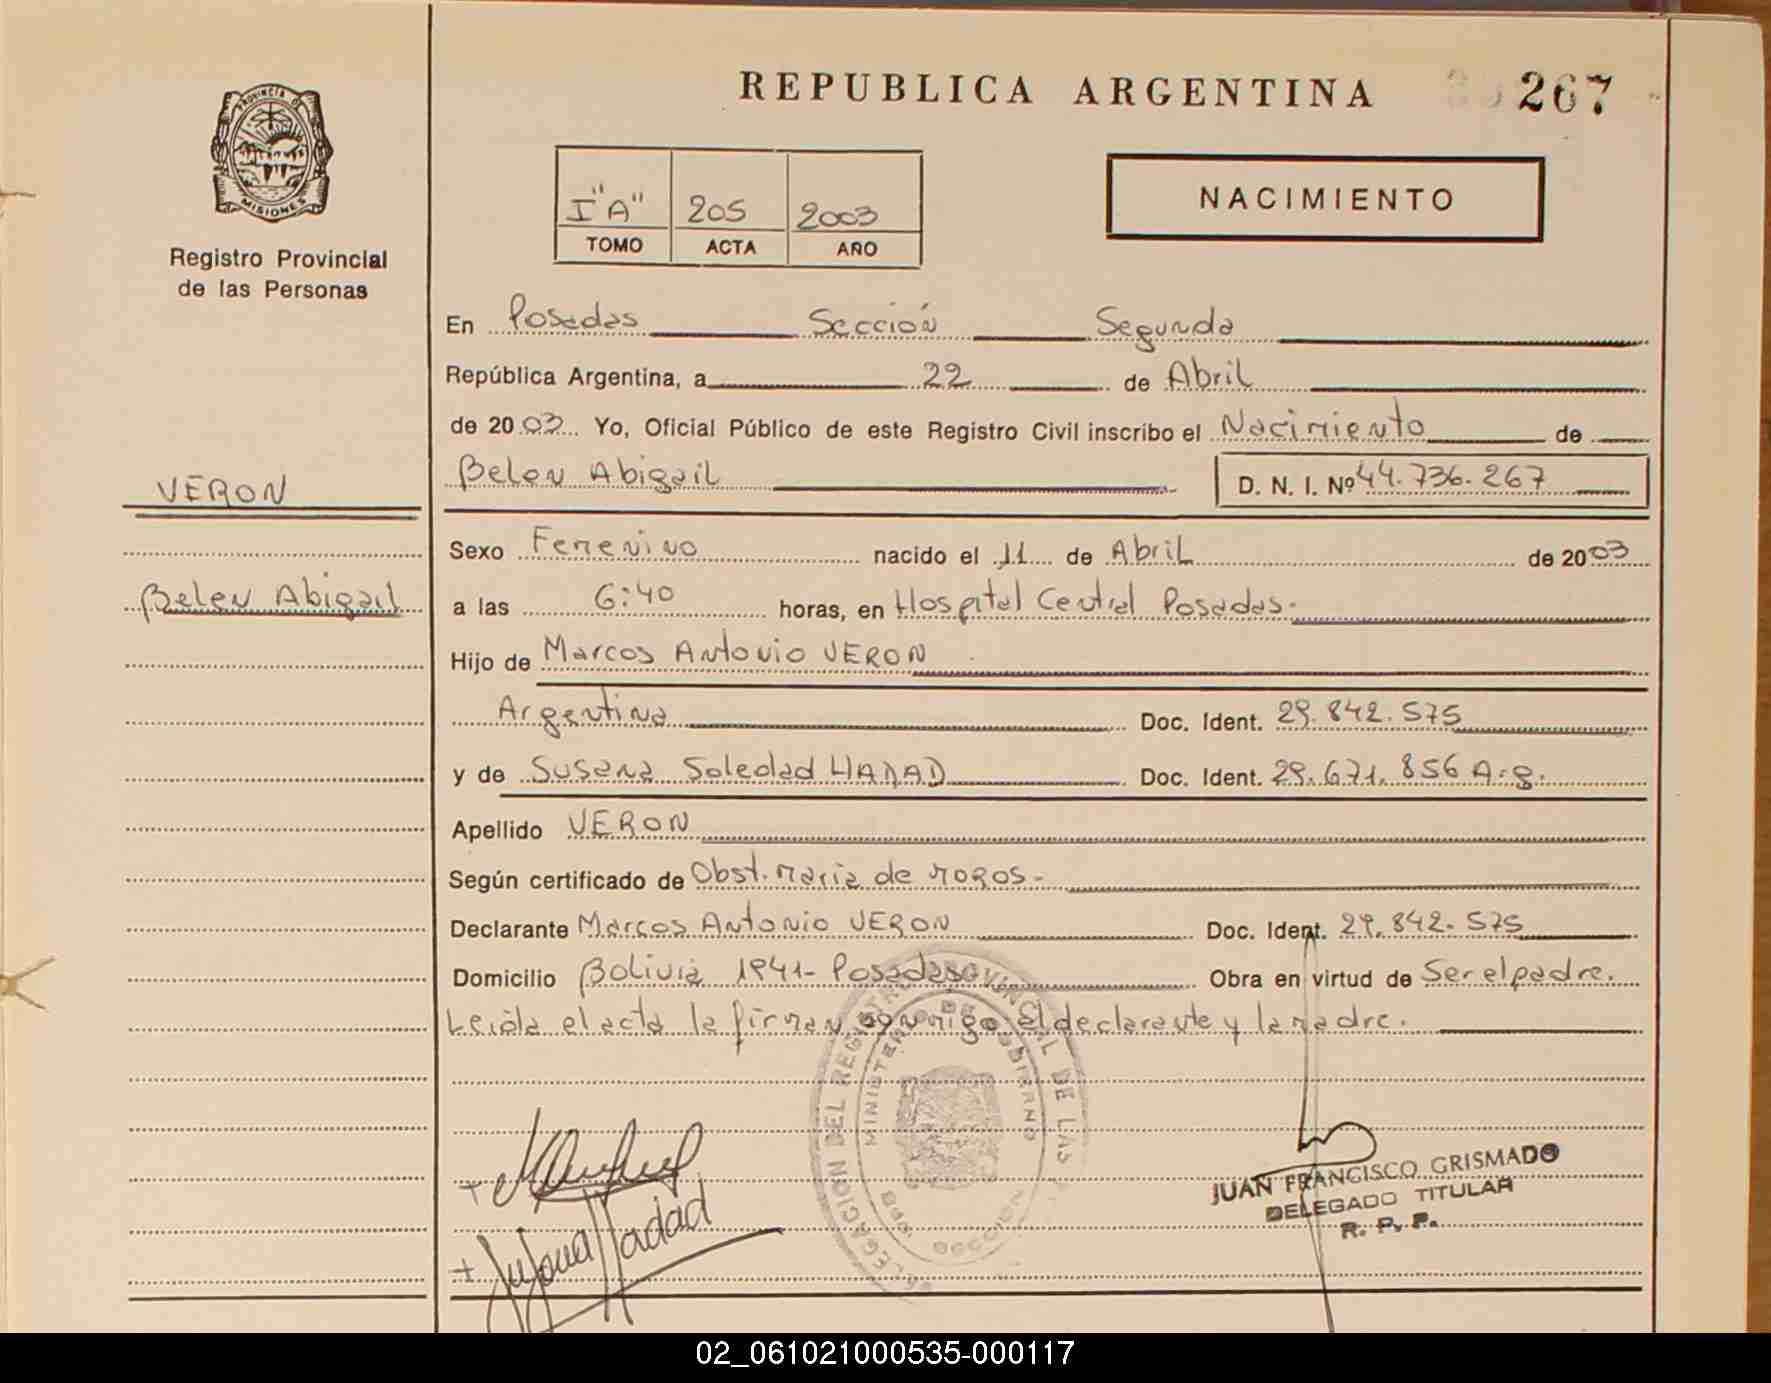 REPUBLICA ARGENTINA
267
PROVINCIA DE
MISIONES
Registro Provincial
de las Personas
I "A" 205 2003
TOMO ACTA AÑO
NACIMIENTO
En Posadas Sección Segunda
República Argentina, a 22 de Abril
de 2003 Yo, Oficial Público de este Registro Civil inscribo el Nacimiento de
Belen Abigail D. N. I. Nº 44.736.267
VERON
Belen Abigail
Sexo Femenino nacido el 11 de Abril de 2003
a las 6:40 horas, en Hospital Central Posadas.
Hijo de Marcos Antonio VERON
Argentina Doc. Ident. 29.842.575
y de Susana Soledad HADAD Doc. Ident. 29.671.856 Arg.
Apellido VERON
Según certificado de Obst. Maria de
Declarante Marcos Antonio VERON Doc. Ident. 29.842.575
Domicilio Bolivia 1941- Posadas Obra en virtud de Ser el padre.
Leida el acta la firman conmigo el declarante y la madre.
DELEGACION DEL REGISTRO PROVINCIAL DE LAS
MINISTERIO DE GOBIERNO
Susana Hadad
JUAN FRANCISCO GRISMADO
DELEGADO TITULAR
R. P. P.
02_061021000535-000117